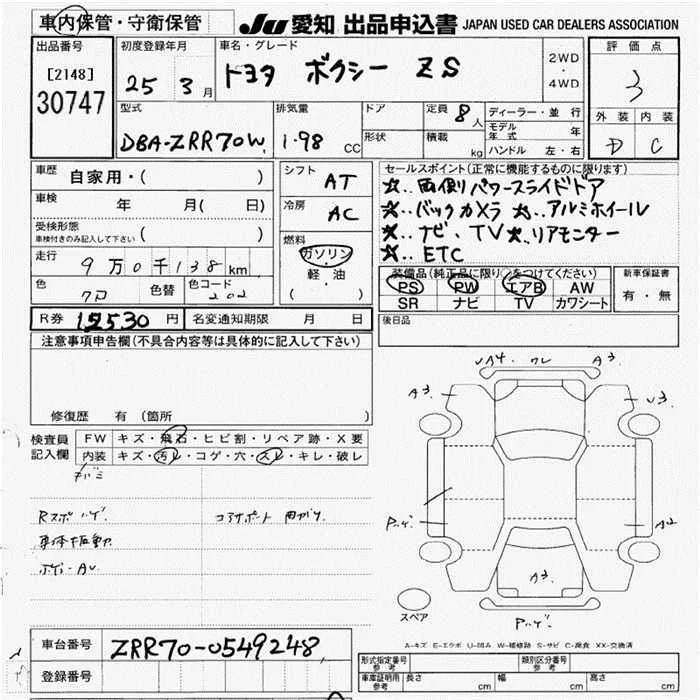 車内保管・守衛保管
JU 愛知 出品申込書 JAPAN USED CAR DEALERS ASSOCIATION
出品番号 初度登録年月 車名・グレード 評価点
[2148] 25 3月 トヨタ ボクシー ZS 2WD・4WD 3
30747
型式 排気量 ドア 定員 8人 ディーラー・並行 外装 内装
DBA-ZRR70W 1.98 CC 形状 積載 kg モデル年式 年 D C
ハンドル 左・右
車歴 自家用・( )
シフト AT
セールスポイント(正常に機能するものに限ります)
車検 年 月( 日)
☆..両側パワースライドドア
冷房 AC
☆..バックカメラ ☆..アルミホイール
受検形態 車検付きのみ記入して下さい ( )
☆..ナビ、TV ☆..リアモニター
燃料 ガソリン・軽・油 ( )
☆..ETC
走行 9万0千138km
装備品(純正品に限り○をつけてください) 新車保証書
色 色替 色コード 202
PS PW エアB AW 有・無
SR ナビ TV カワシート
R券 12530円 名変通知期限 月 日
後日品
注意事項申告欄(不具合内容等は具体的に記入して下さい)
修復歴 有 (箇所 )
検査員記入欄 FW キズ・飛石・ヒビ割・リペア跡・X要
内装 キズ・汚レ・コゲ・穴・スレ・キレ・破レ
Rスポ ハゲ. コアサポート 曲がり.
A3 A3 U3
A2
A3
スペア
A-キズ E-エクボ U-凹み W-補修跡 S-サビ C-腐食 XX-交換済
車台番号 ZRR70-0549248
型式指定番号 参考 類別区分番号 参考
登録番号
車庫証明用 参考 長さ cm 幅 cm 高さ cm